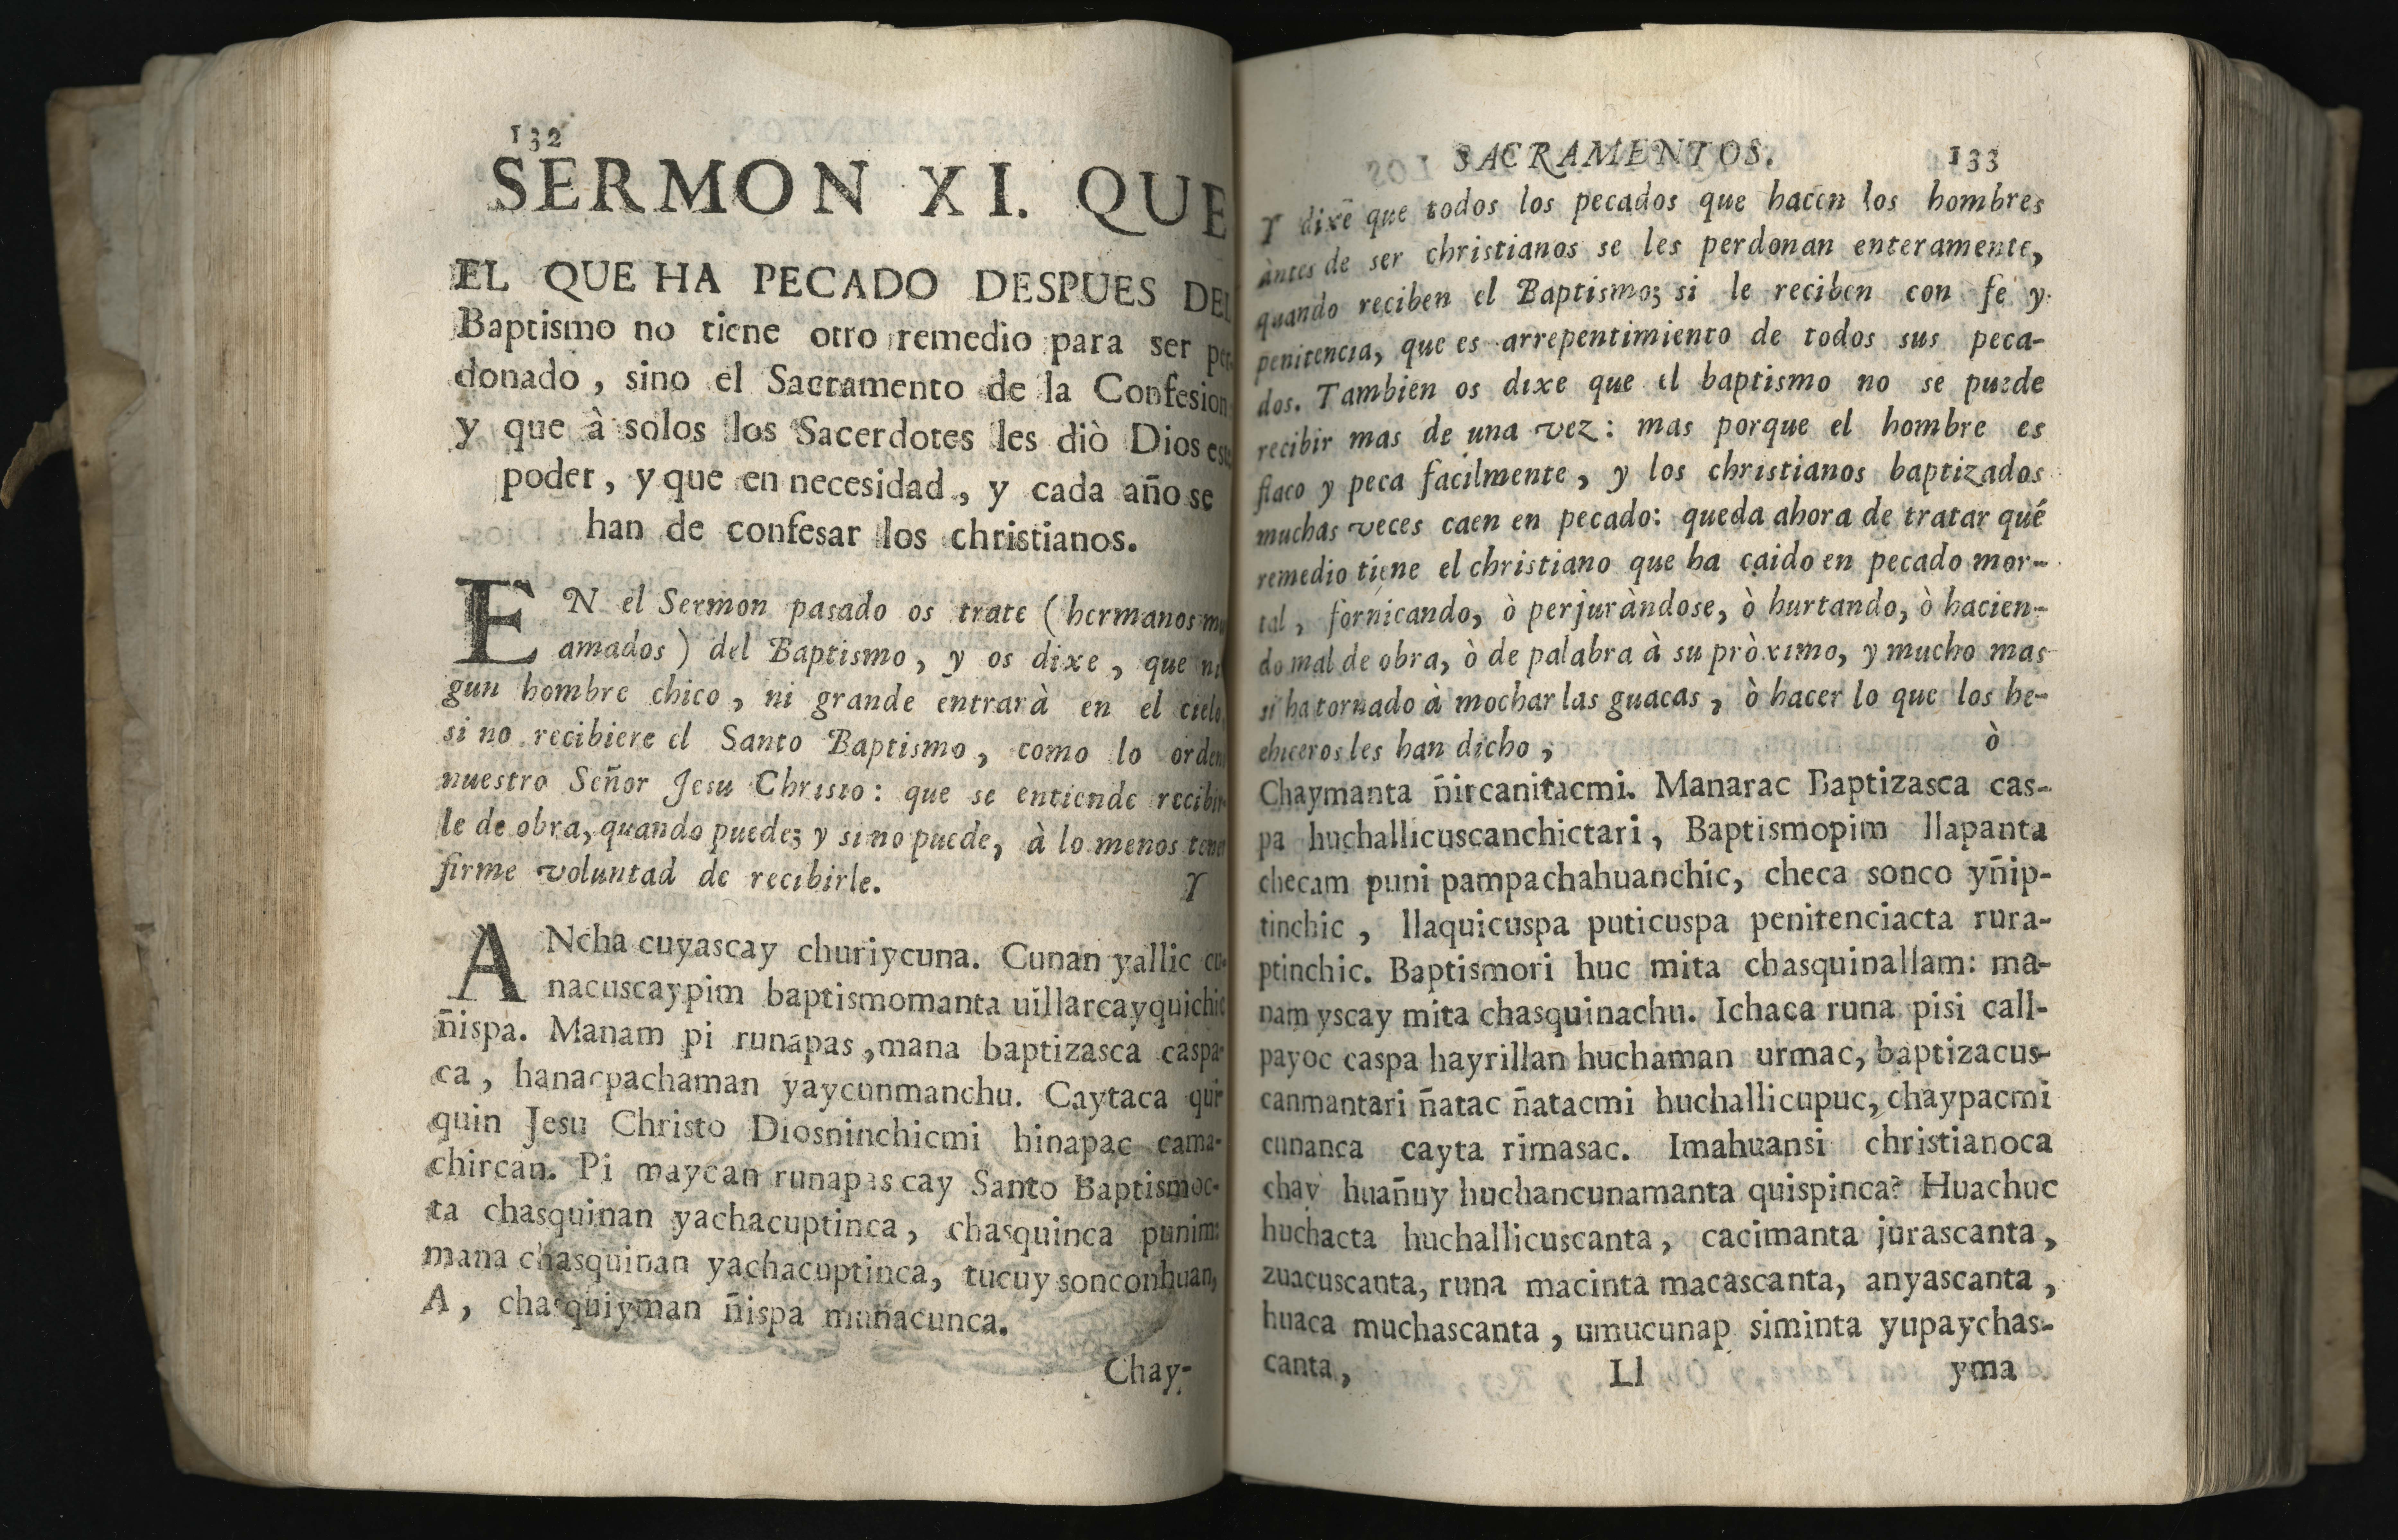 132
SERMON XI. QUE
EL QUE HA PECADO DESPUES DEL
Baptismo no tiene otro remedio para ser per-
donado, sino el Sacramento de la Confesion
y que à solos los Sacerdotes les diò Dios este
poder, y que en necesidad, y cada año se
han de confesar los christianos.
EN el Sermon pasado os trate (hermanos
amados) del Baptismo, y os dixe, que
gun hombre chico, ni grande entrarà en el cielo,
si no recibiere el Santo Baptismo, como lo
nuestro Señor Jesu Christo: que se entiende recibir-
le de obra, quando puede; y si no puede, à lo menos tener
firme voluntad de recibirle.
Y
ANcha cuyascay churiycuna. Cunan yallic cu-
nacuscaypim baptismomanta uillarcayquichic
ñispa. Manam pi runapas, mana baptizasca caspa-
ca, hanacpachaman yaycunmanchu. Caytaca qui-
quin Jesu Christo Diosninchicmi hinapac cama-
chircan. Pi maycan runapas cay Santo Baptismoc-
ta chasquinan yachacuptinca, chasquinca punim:
mana chasquinan yachacuptinca, tucuy sonconhuan,
A, chasquiyman ñispa munacunca.
Chay-
SACRAMENTOS. 133
Y dixe que todos los pecados que hacen los hombres
àntes de ser christianos se les perdonan enteramente,
quando reciben el Baptismo; si le reciben con fe y
penitencia, que es arrepentimiento de todos sus peca-
dos. Tambien os dixe que el baptismo no se puede
recibir mas de una vez: mas porque el hombre es
flaco y peca facilmente, y los christianos baptizados
muchas veces caen en pecado: queda ahora de tratar qué
remedio tiene el christiano que ha caido en pecado mor-
tal, fornicando, ò perjuràndose, ò hurtando, ò hacien-
do mal de obra, ò de palabra à su pròximo, y mucho mas
si ha tornado à mochar las guacas, ò hacer lo que los he-
chiceros les han dicho,
ò
Chaymanta ñircanitacmi. Manarac Baptizasca cas-
pa huchallicuscanchictari, Baptismopim llapanta
checam puni pampachahuanchic, checa sonco yñip-
tinchic, llaquicuspa puticuspa penitenciacta rura-
ptinchic. Baptismori huc mita chasquinallam: ma-
nam yscay mita chasquinachu. Ichaca runa pisi call-
payoc caspa hayrillan huchaman urmac, baptizacus-
canmantari ñatac ñatacmi huchallicupuc, chaypacmi
cunanca cayta rimasac. Imahuansi christianoca
chay huañuy huchancunamanta quispinca? Huachuc
huchacta huchallicuscanta, cacimanta jurascanta,
zuacuscanta, runa macinta macascanta, anyascanta,
huaca muchascanta, umucunap siminta yupaychas-
canta,
Ll
yma